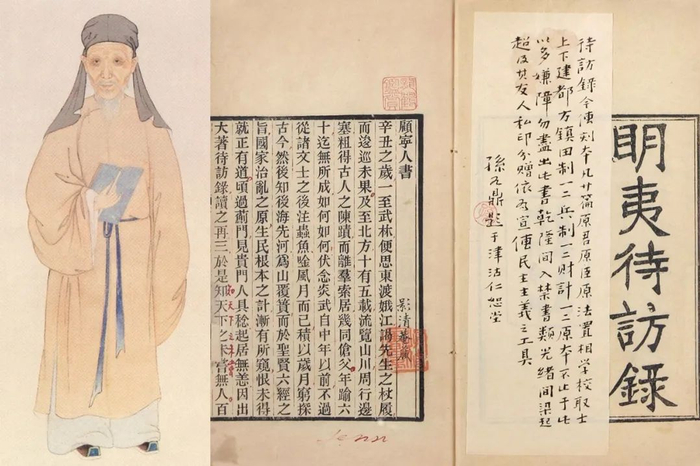 明夷待訪錄
待訪錄今傳刻本凡廿篇原君原臣原法置相學校取士
上下建都方鎮田制一二兵制一二財計一二原本不止于此
以多嫌障勿盡出此書乾隆間入禁書類光緒間梁起
超及其友人私印分贈依為宣傳民主主義之工具
孫鼎于津沽仁恕堂
顧寧人書
辛丑之歲一至武林便思東渡娥江謁先生之杖履
而逡巡未果及至北方十有五載流覽山川周行邊
塞粗得古人之陳蹟而離羣索居幾同傖父年踰六
十迄無所成如何如何伏念炎武自中年以前不過
從諸文士之後注蟲魚唫風月而已積以歲月窮探
古今然後知後海先河為山覆簣而於聖賢六經之
旨國家治亂之原生民根本之計漸有所窺恨未得
就正有道頃過薊門見貴門人具稔起居無恙因出
大著待訪錄讀之再三於是知天下之未嘗無人百